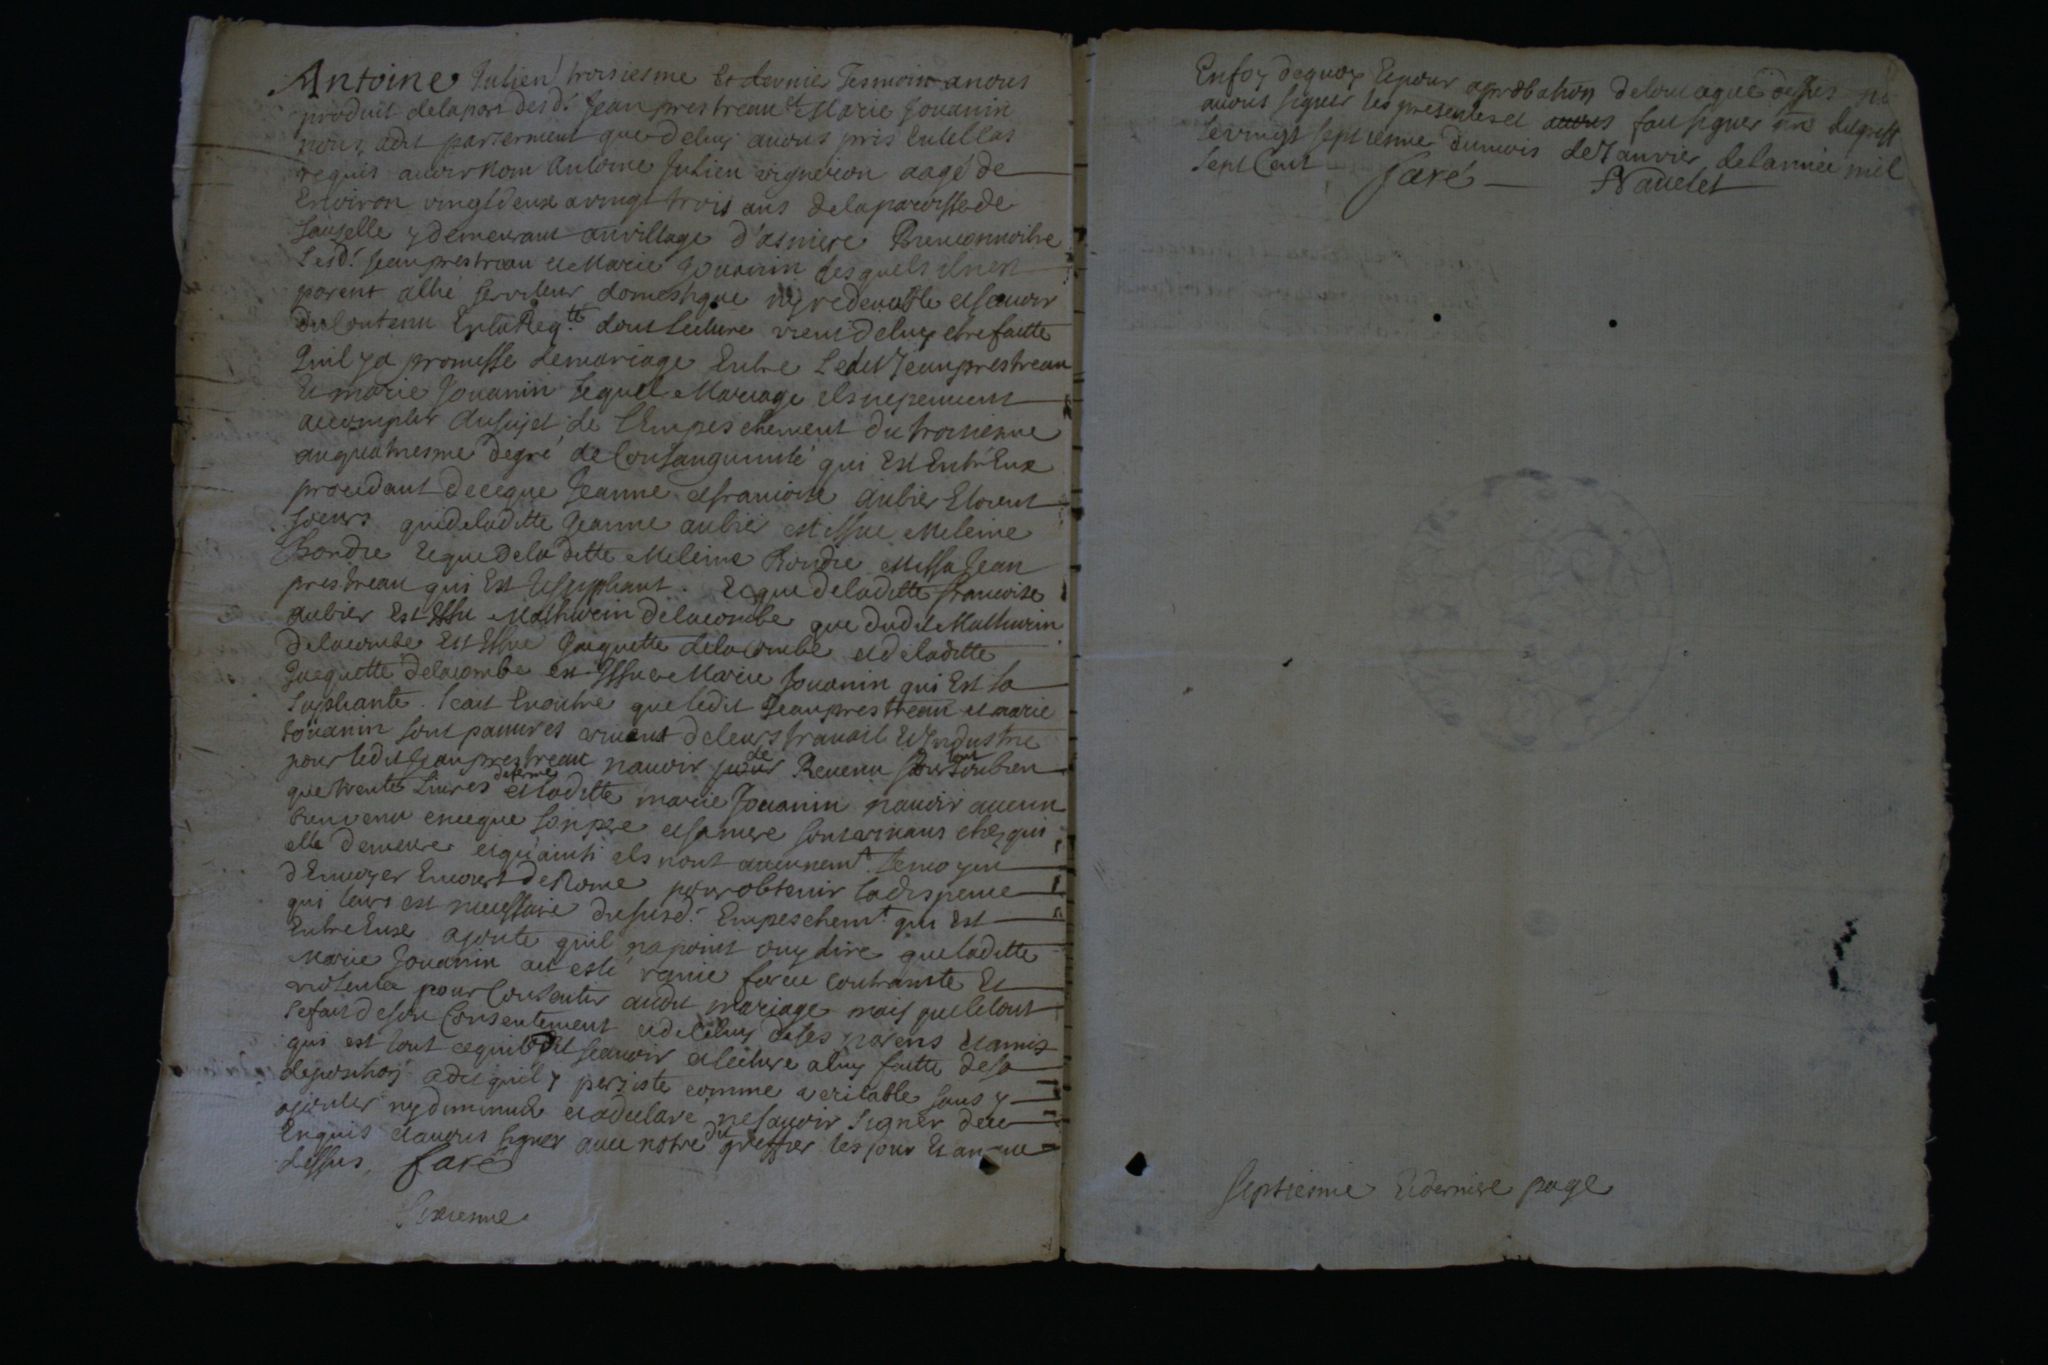 Antoine Julien troisiesme Et dernier Tesmoin anous
produit delapart desd.ts Jean prestreau et Marie Jouanin
nous adit parserment que deluy avons pris Entel cas
requis avoir Nom Antoine Julien vigneron aagé de
Environ vingtdeux avingt trois ans delaparoisse de
Sauzelle y demeurant auvillage d'asniere Bienconnoitre
Lesd.ts Jean prestreau et Marie Jouanin desquels ilnest
parent allié serviteur domestique ny redevable et scavoir
ducontenu En la Reqtte dont lecture vient deluy etre faitte
quil ya promesse demariage Entre Ledit Jean prestreau
Et marie Jouanin lequel Mariage ils nepeuvent
accomplir ausujet de l'Empeschement du troisiesme
auquatriesme degré de Consanguinité qui Est Entr'Eux
procedant deceque Jeanne et francoise aubier Etoient
soeurs que deladitte Jeanne aubier est issue Meleine
Rondie Et que dela ditte Meleine Rondie est issu Jean
prestreau qui Est le supliant. Et que deladitte francoise
aubier est Issu Mathurin delacombe que dudit Mathurin
Delacombe est Issue Jacquette delacombe et deladitte
Jacquette delacombe est Issue Marie Jouanin qui Est la
supliante. Scait Enoutre que ledit Jean prestreau et marie
Jouanin sont pauvres vivant deleurs travail et Industrie
pour ledit Jean prestreau navoir de Revenu tout bien
que trente Livres deferme et ladite marie Jouanin navoir aucun
Revenu enceque son pere et sa mere sont vivans chez qui
elle demeure et qu'ainsi ils nont aucunem.t lemoyen
d'Envoyer En court de Rome pour obtenir ladispence
qui leurs est necessaire dususd.t Empeschem.t qui Est
Entre Eux ajoute quil na point ouy dire que laditte
Marie Jouanin ait esté ravie forcée contrainte Et
violentée pour Consentir audit mariage mais que letout
sefait de son Consentement et de celuy de ses parens et amis
qui est tout cequil adit scavoir et lecture aluy faitte desa
deposition adit quil y persiste comme a veritable sans y
ajouter ny diminuer et adeclaré ne scavoir signer dece
Enquis et avons signer avec notre dit greffier les jour Et an que
dessus. faré
Sixiesme
Enfoy dequoy Et pour aprobation detout ceque dessus
avons signer les presentes et fait signer
le vingt septiesme dumois de Janvier delannée mil
sept Cent faré Nadelet
septiesme Et derniere page